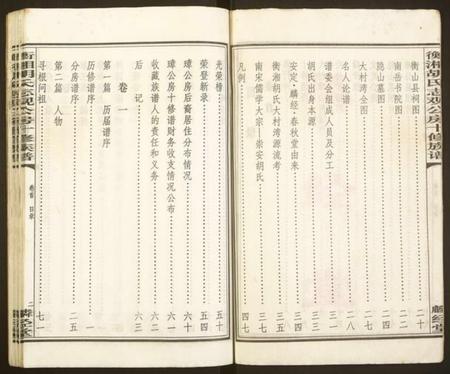 衡山县祠图……二十
南岳书院图……二二
隐山墓图……二四
大村湾全图……二一
名人论谱……二八
谱委会组成人员及分工……三一
胡氏出身本源……三四
安定·麟经·春秋堂由来……三七
衡湘胡氏大村湾源流考……四十
南宋儒学大宗—崇安胡氏……四七
凡例……四九
光荣榜……五十
荣登新录……五四
璋公房后裔居住分布情况……六十
璋公房十修谱财务收支情况公布……六一
收藏族谱人的责任和义务……六二
后记……六三
卷一
第一篇 历届谱序
历修谱序……一
分房谱序……二五
第二篇 人物
寻根问祖……七一
卷首 目录
二
麟经堂